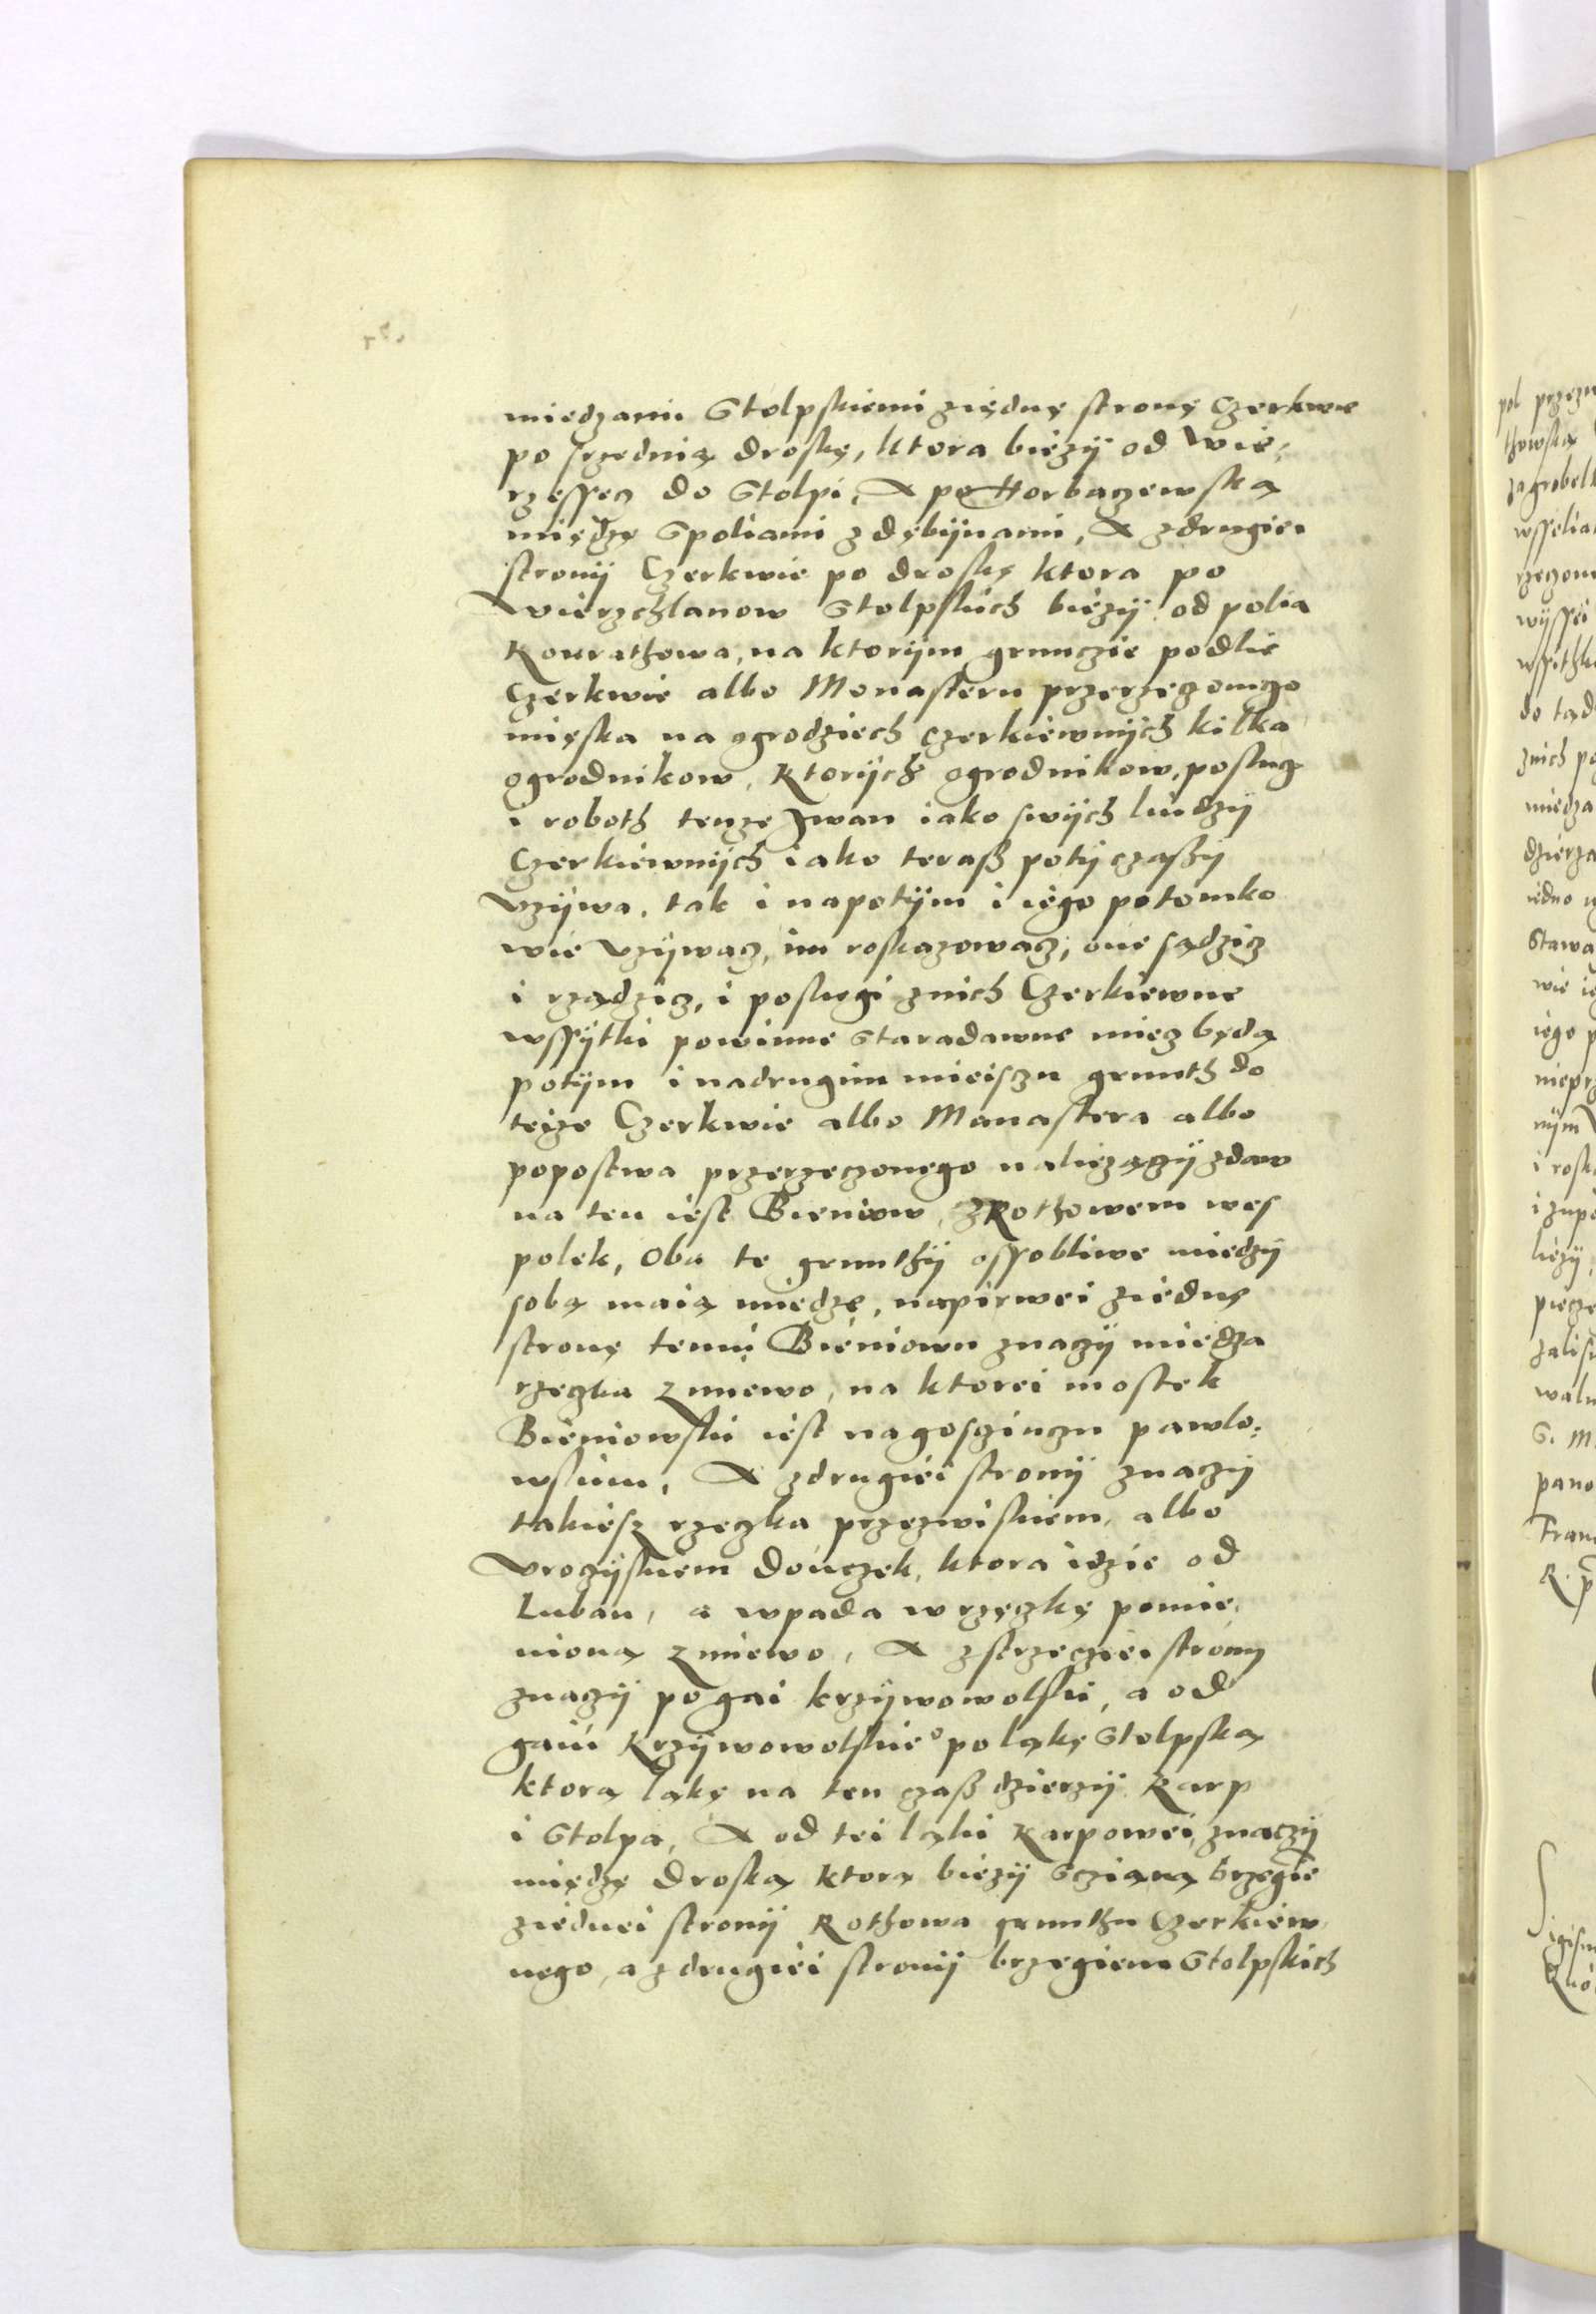 miedzami Stolpskiemi ziędnę stronę Czerkwie
po srzednią droskę, ktora bieży od Wie,
rzessecz do Stolpi, A po Horbaczewską
międzę Spoliami z dębijnami, A zdrugiei
stronij Czerkwie po droskę ktora po
Wierzchlanow Stolpskich bieżij od polia
Konrathowa, na ktorijm grunczie podlie
Czerkwie albo Monasteru przerzeczonego
mięska na ogrodziech czerkiewnijch kilka
ogrodnikow, Ktorijch ogrodnikow, poslug
i roboth tenze Iwan iako swijch ludzij
Czerkiewnijch iako teraß potij czaßij
Vzijwa, tak i napotijm i iego potomko
wie Vzijwacz, im roskazowacz, one sądzicz
i rządzicz, i poslugi znich Czerkiewne
wssijtki powinne Staradawne miecz będą
potijm i nadrugim mieisczu grunth do
teize Czerkwie albo Manastera albo
popostwa przerzeczonego naliezączij zdaw
na ten iest Bieniow, zRothowem wes
polek, Oba te grunthij ossobliwe miedzij
sobą maią miedzę, napirwei ziednę
stronę temu Bieniowu znaczij miedza
rzeczka Zmiewo, na ktorei mostek
Bieniowski iest nagosczinczu pawlo:
wskim, A zdrugiei stronij znaczij
takiesz rzeczka przezwiskiem, albo
Vroczijskiem Dończek, ktora idzie od
Luban, a wpada w rzęczkę pomie,
nioną Zmiewo, A zstrzecziei strony
znaczij po gai krzijwowolski, a od
gaiu Krzijwowolskie° po ląkę Stolpską
ktorą ląkę na ten czaß dzierzij Karp
i Stolpa, A od tei ląki Karpowei, znaczij
międzę droską ktorą biezij Scianą brzegie
ziednei stronij Rothowa grunthu Czerkiew
nego, a zdrugiei stronij brzegiem Stolpskich